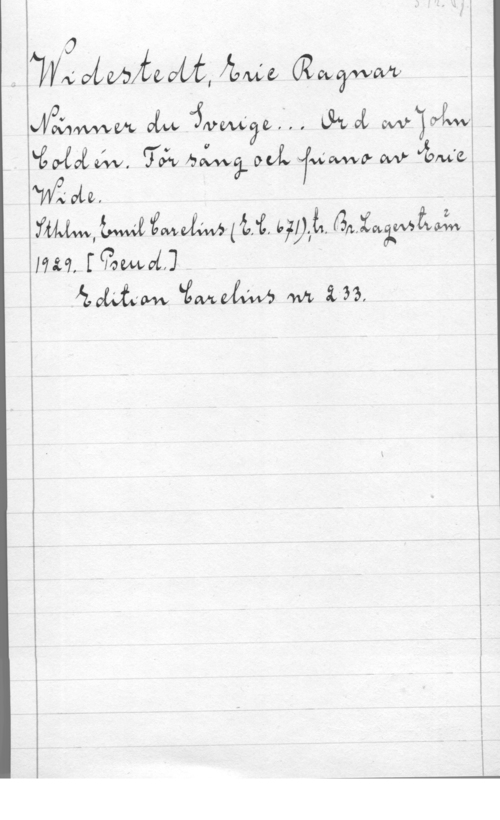 Widestedt, Eric Ragnar
Nämner du Sverige... Ord av John
Coldén. För sång och piano av Eric
Wide.
Sthlm, Emil Carelius (E.C. 671); tr. Br. Lagerström
1929. [Pseud.]
Edition Carelius nr 233.